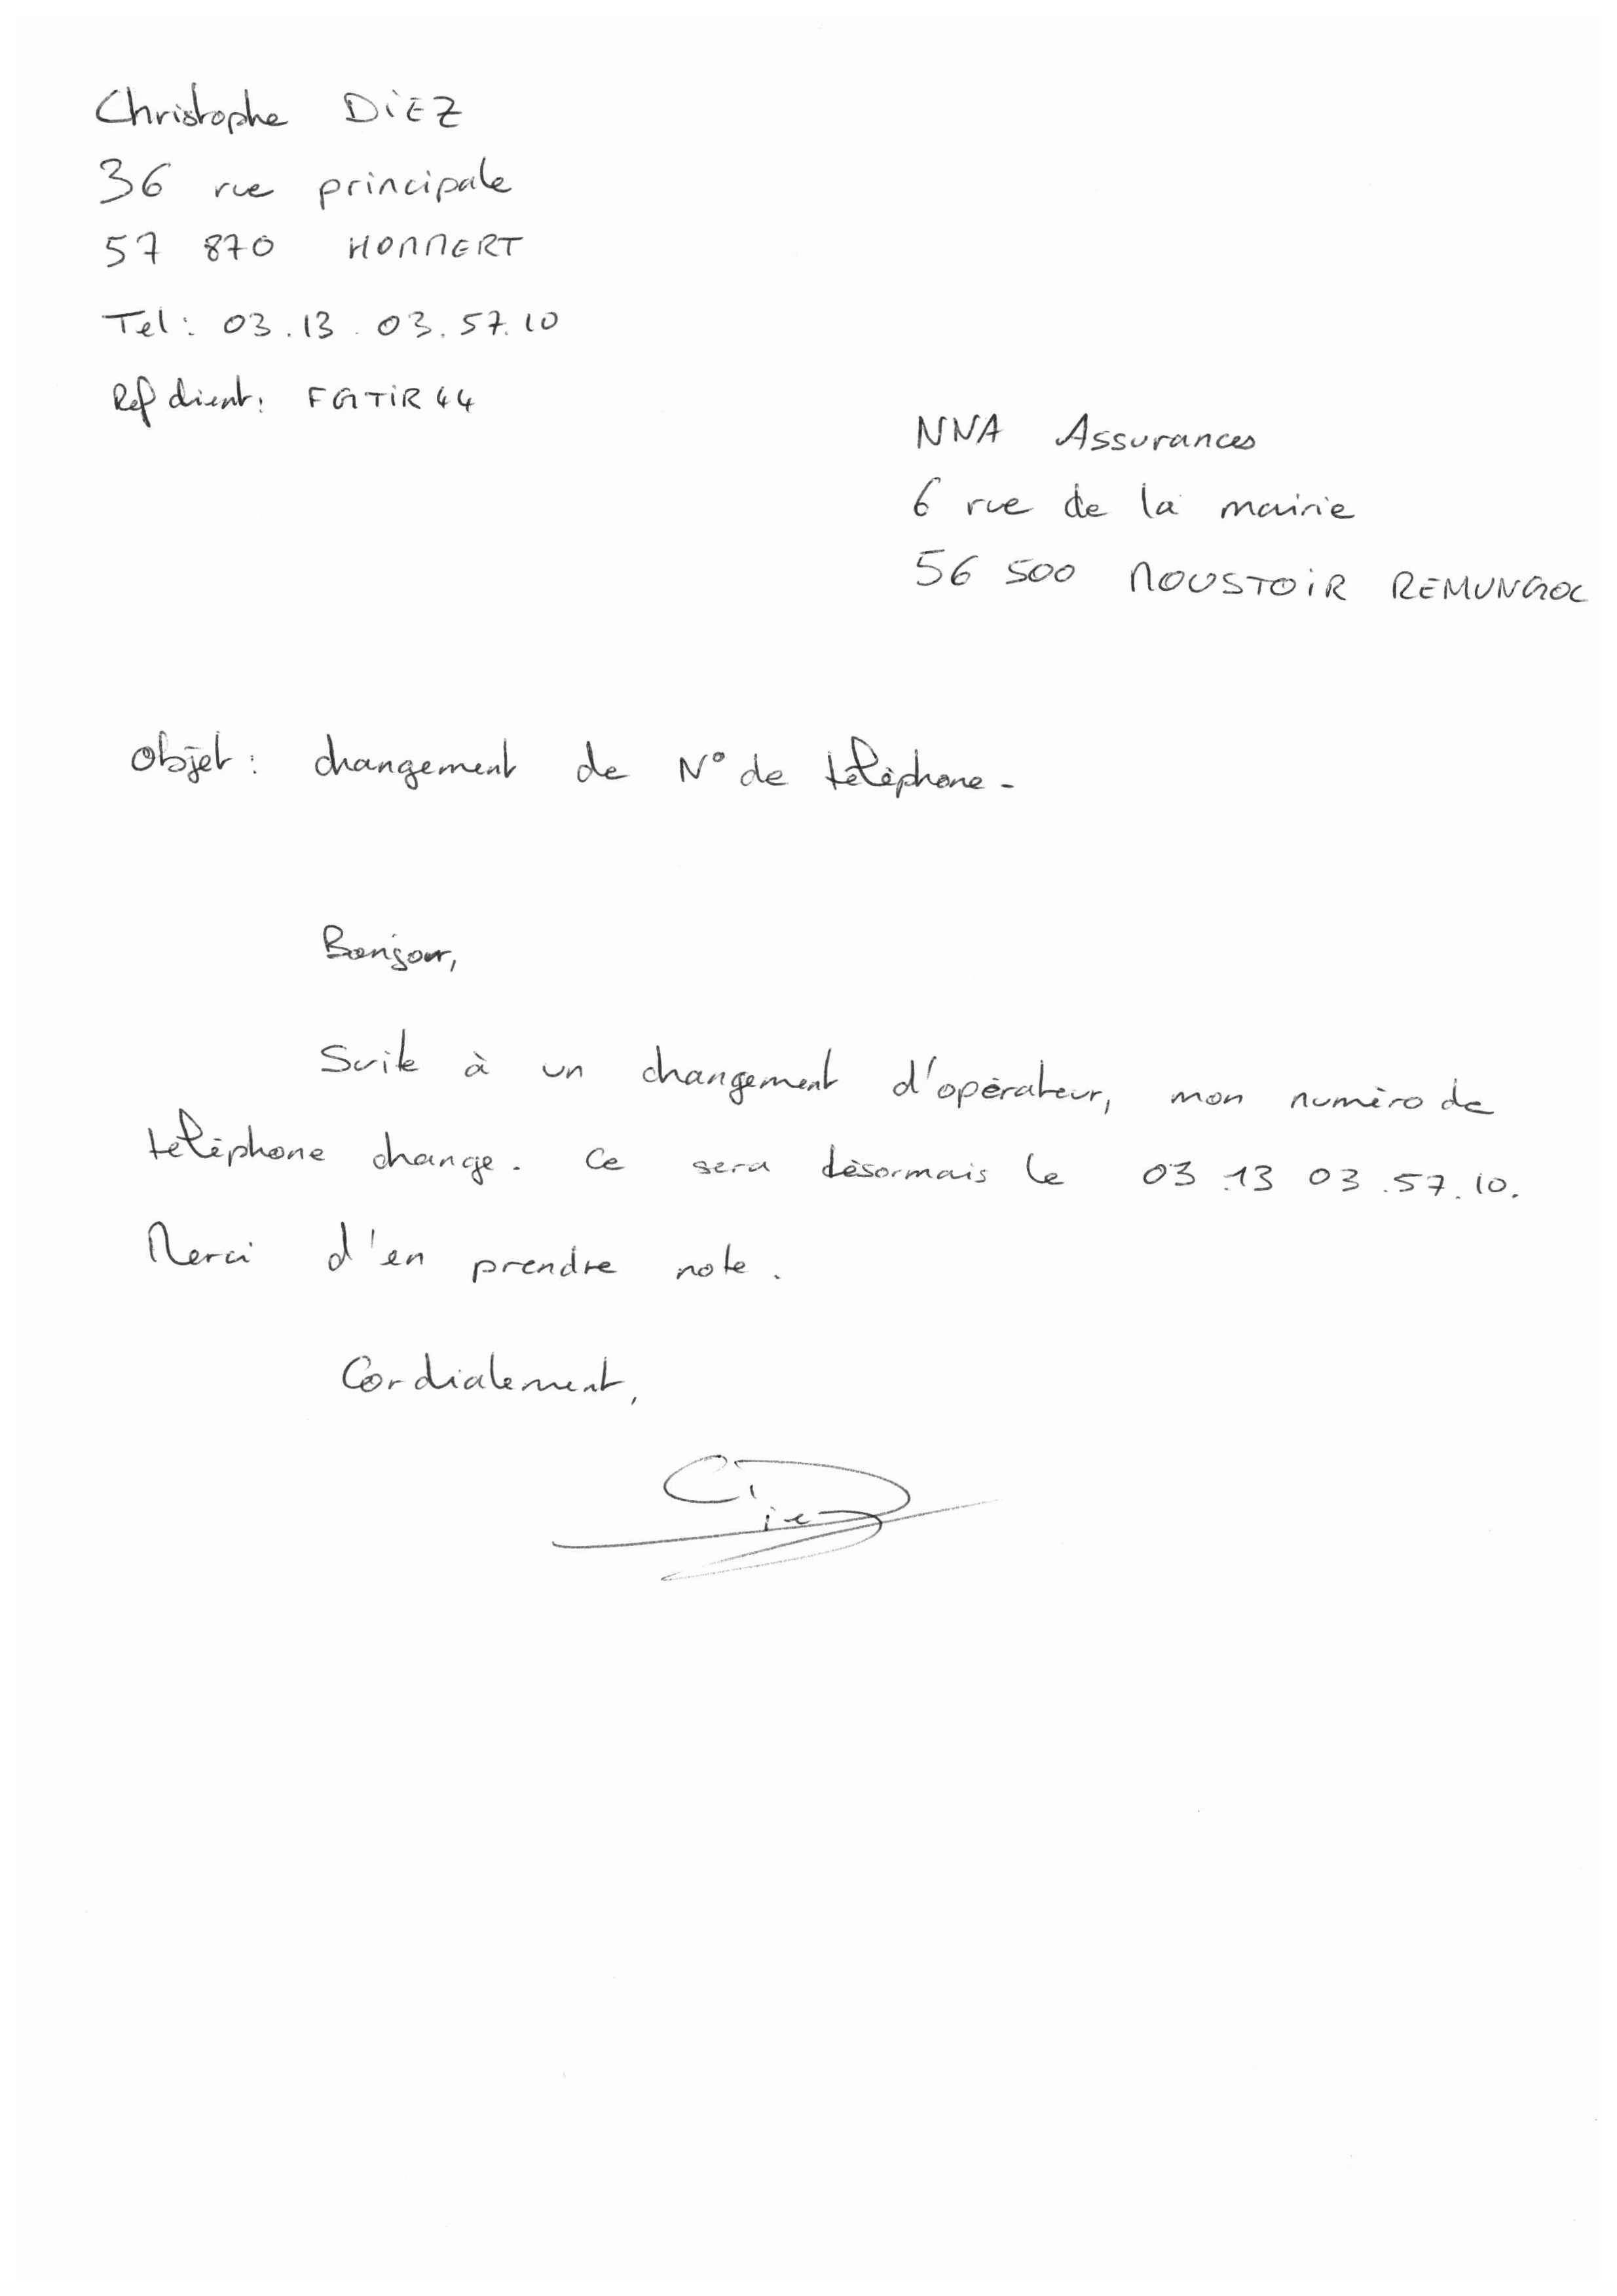 Christophe DiEZ
36 rue principale
57 870 HOMMERT
Tel : 03.13.03.57.10
Ref client : FGTiR44
NNA Assurances
6 rue de la mairie
56 500 MOUSTOiR REMUNGOL
Objet : changement de N° de téléphone.
Bonjour,
Suite à un changement d'opérateur, mon numéro de
téléphone change. Ce sera désormais le 03.13 03.57.10.
Merci d'en prendre note.
Cordialement,